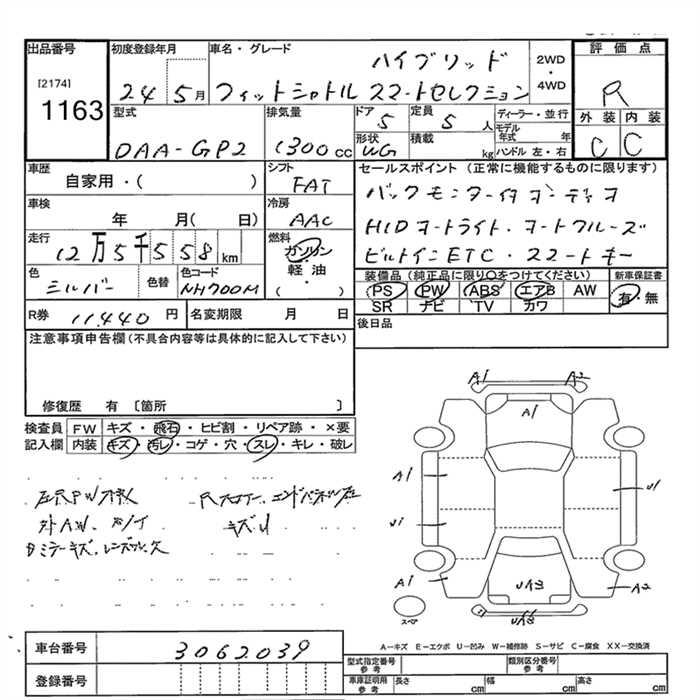 出品番号 初度登録年月 車名・グレード 評価点
[2174]
1163
24 5月
ハイブリッド 2WD・4WD
フィットシャトル スマートセレクション
R
外装 内装
C C
型式 排気量 ドア 定員 ディーラー・並行
DAA-GP2 1300cc 5 5人 モデル年式 年
形状 積載 ハンドル 左・右
WG kg
車歴 シフト セールスポイント(正常に機能するものに限ります)
自家用・( ) FAT
車検 冷房
年 月( 日) AAC
HIDオートライト・オートクルーズ
走行 燃料
12万5千558km ガソリン・軽油・( )
ビルトインETC・スマートキー
色 色替 色コード 装備品(純正品に限り○をつけてください) 新車保証書
シルバー NH700M PS PW ABS エアB AW 有・無
SR ナビ TV カワ
R券 11,440円 名変期限 月 日 後日品
注意事項申告欄(不具合内容等は具体的に記入して下さい)
修復歴 有〔箇所 〕
検査員 FW キズ・飛石・ヒビ割・リペア跡・×要
記入欄 内装 キズ・汚レ・コゲ・穴・スレ・キレ・破レ
A1 A2
A1
A1 U1
U1
A1 UA3 A2
スペア
A-キズ E-エクボ U-凹み W-補修跡 S-サビ C-腐食 XX-交換済
車台番号 3062039
登録番号
型式指定番号 参考 類別区分番号 参考
車庫証明用 参考 長さ cm 幅 cm 高さ cm